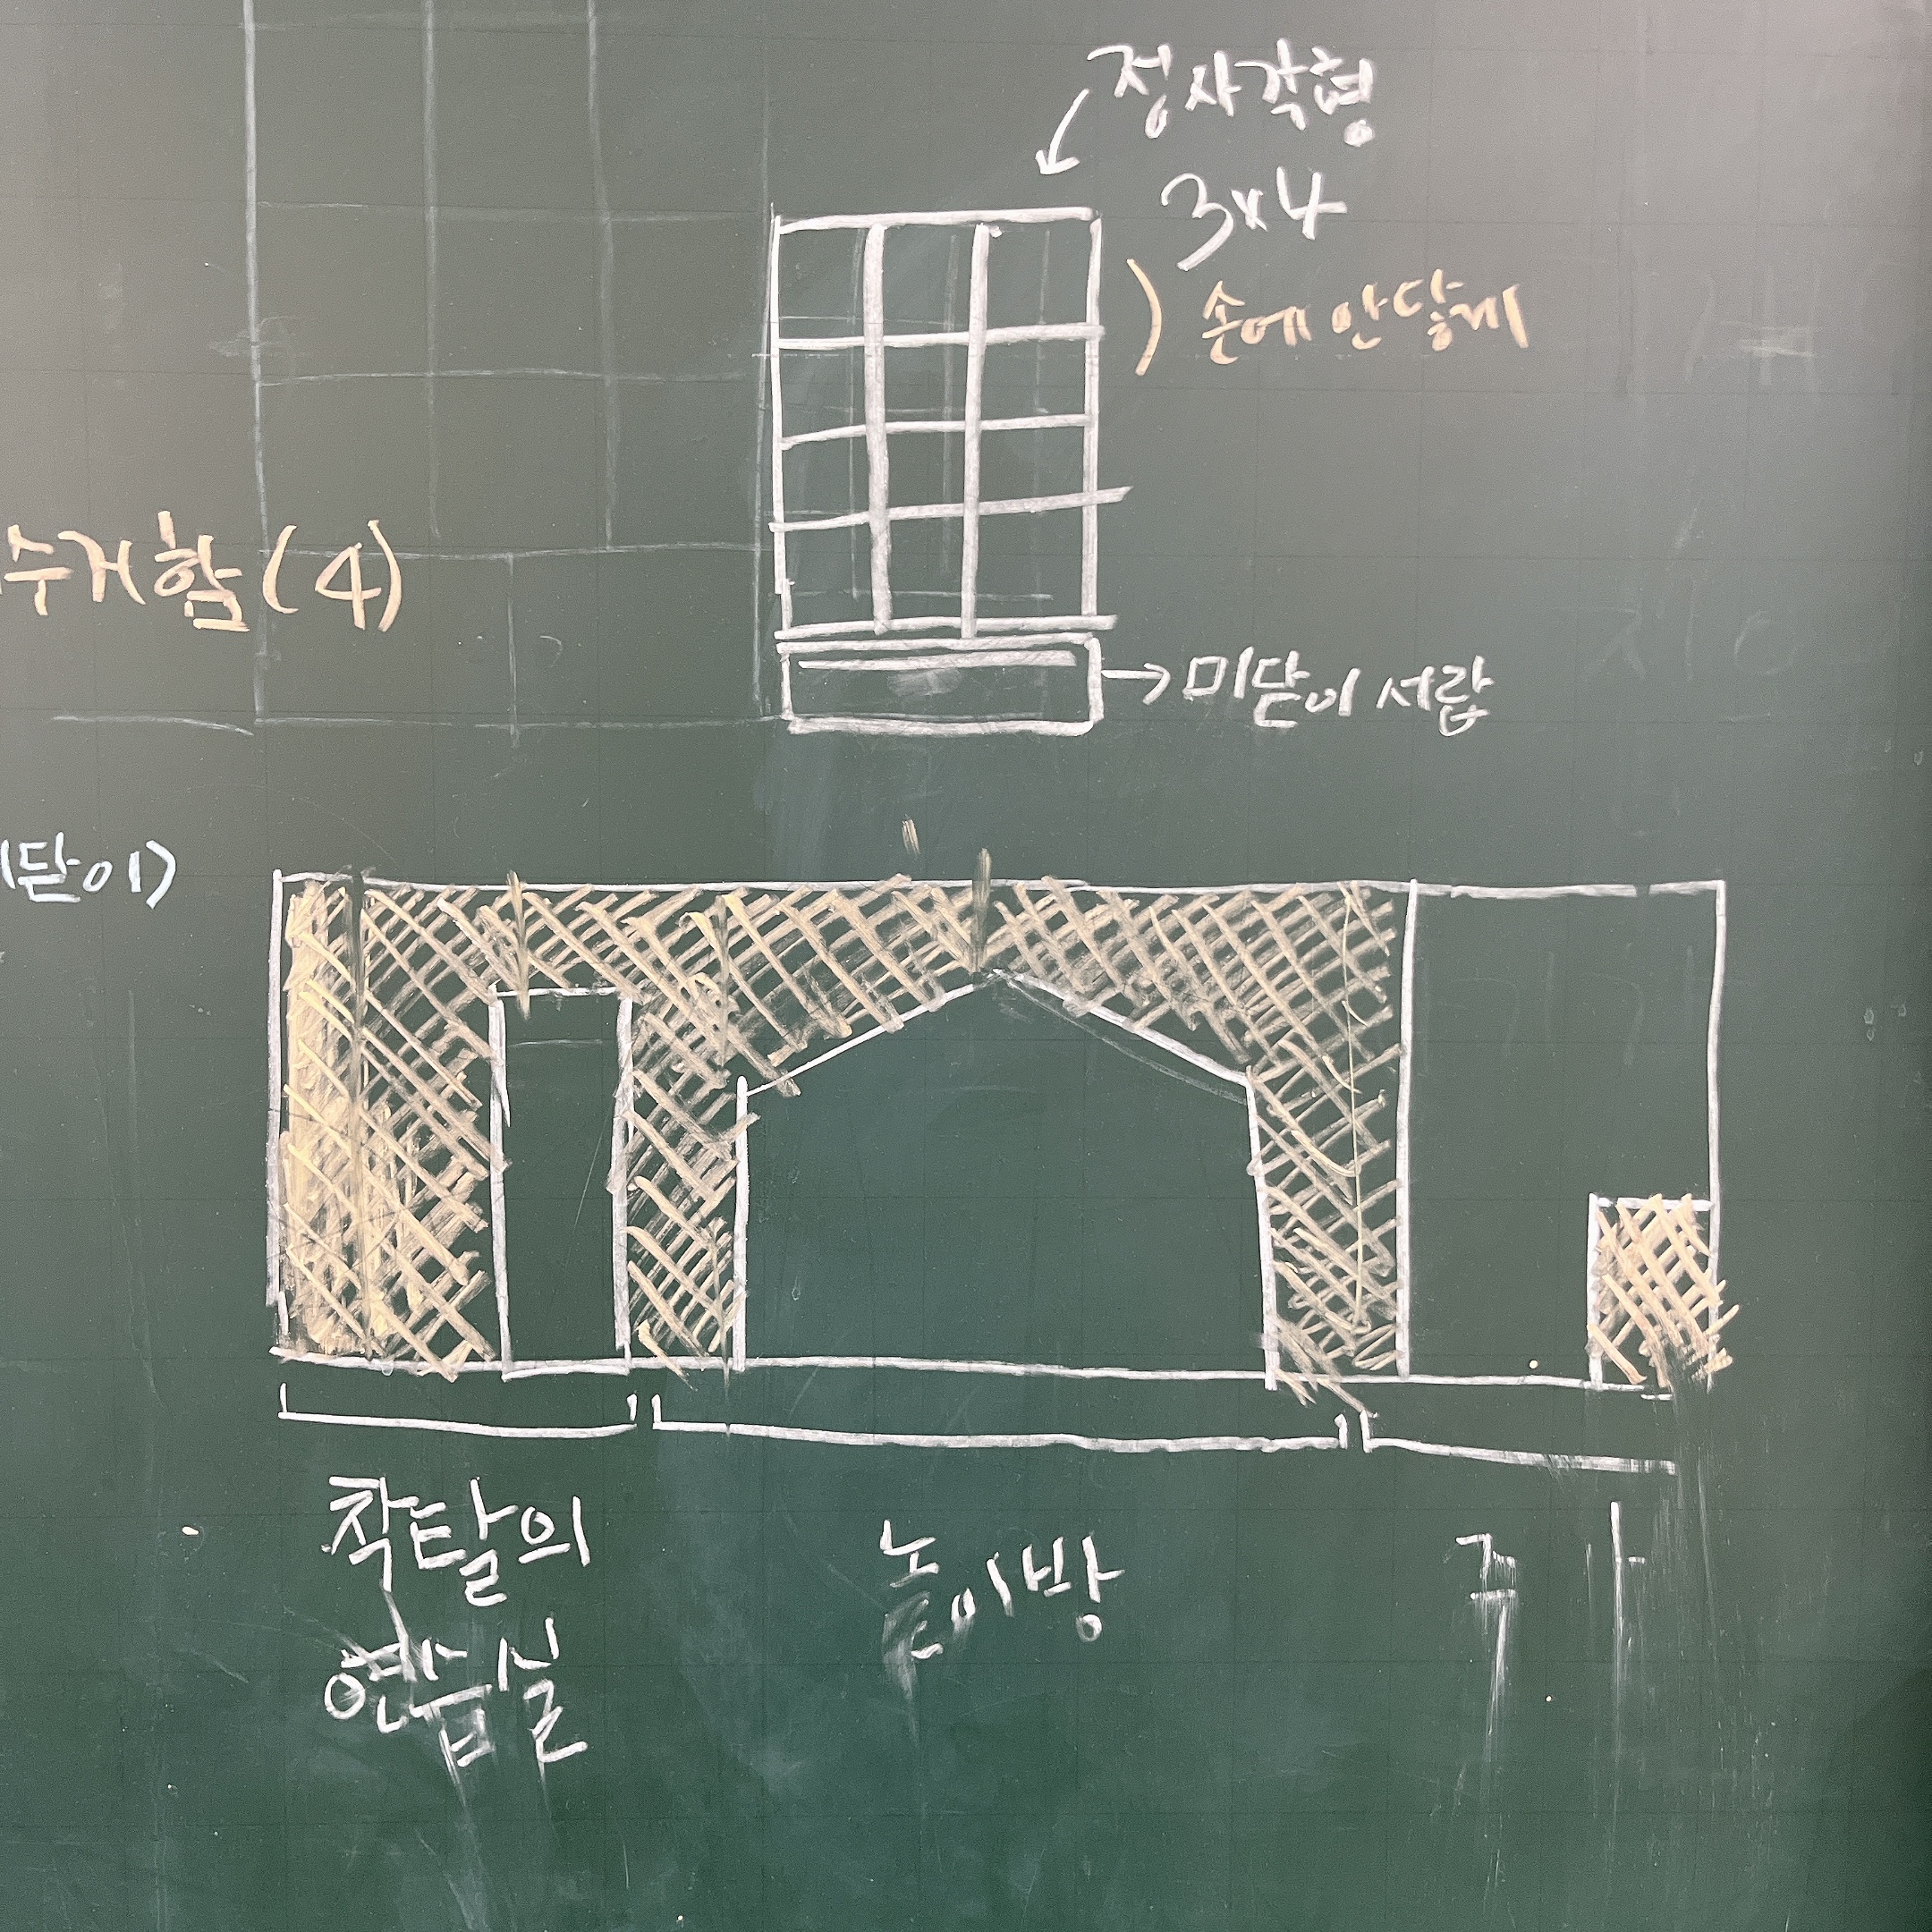 정사각형
3x4
) 손에 안닿게
수거함(4)
→미닫이 서랍
닫이)
착탈의
연습실
놀이방